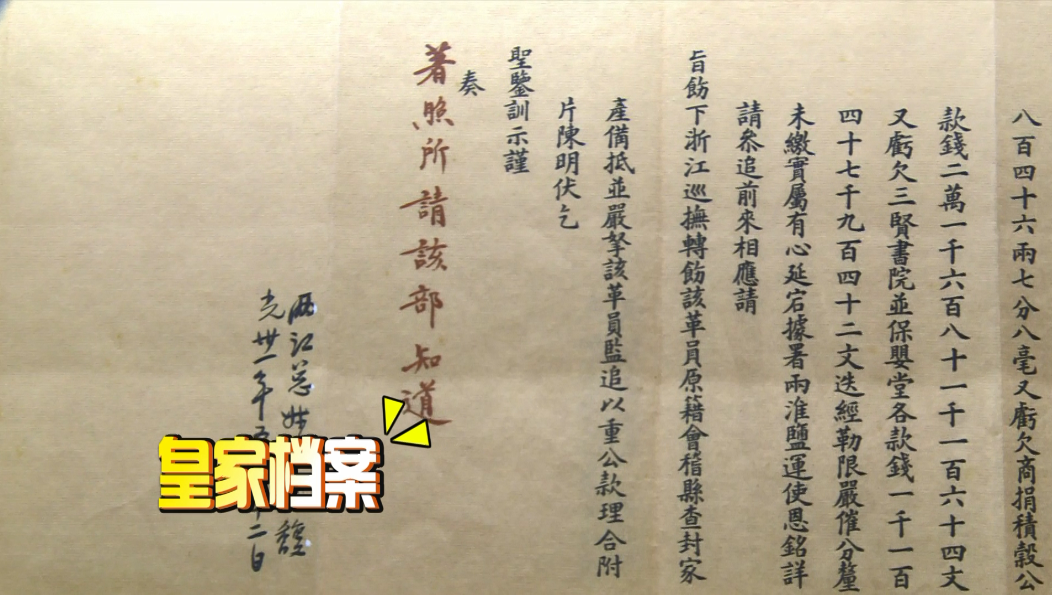 八百四十六兩七分八毫又虧欠商捐積穀公
款錢二萬一千六百八十一千一百六十四文
又虧欠三賢書院並保嬰堂各款錢一千一百
四十七千九百四十二文迭經勒限嚴催分釐
未繳實屬有心延宕據署兩淮鹽運使恩銘詳
請參追前來相應請
旨飭下浙江巡撫轉飭該革員原籍會稽縣查封家
產備抵並嚴拏該革員監追以重公款理合附
片陳明伏乞
聖鑒訓示謹
奏
著照所請該部知道
兩江总 馥
光卅一年 十二日
皇家档案